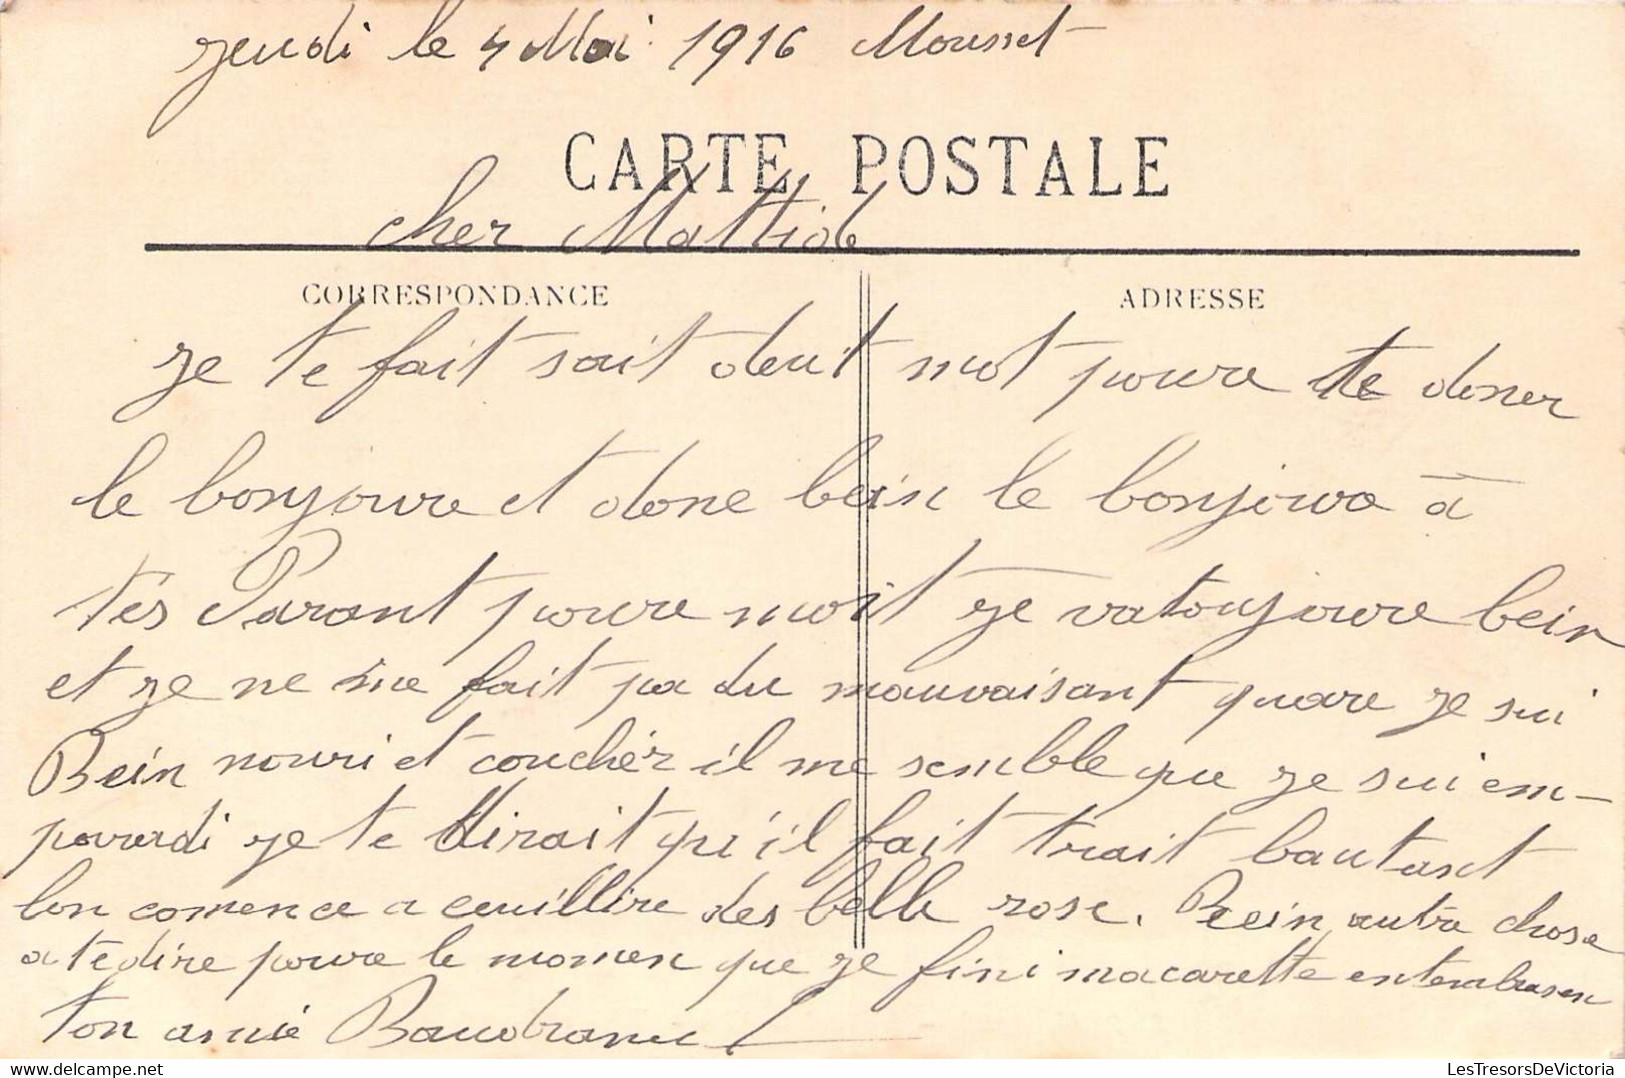 jeudi le 4 Mai 1916 Mousset
CARTE POSTALE
cher Mattiob
CORRESPONDANCE
ADRESSE
je te fait sait deut mot poure te doner
le bonjoure et done bein le bonjoure à
tés Parant poure moit je va toujoure bein
et je ne me fait pa du mauvaisant quare je sui
Bein nouri et couchér il me semble que je sui em-
pourdi je te dirait qu'il fait trait bautant
lon comence a ceuillire des belle rose. Reein autre chose
a te dire poure le momen que je fini macarette entembrasen
ton amie
LesTresorsDeVictoria